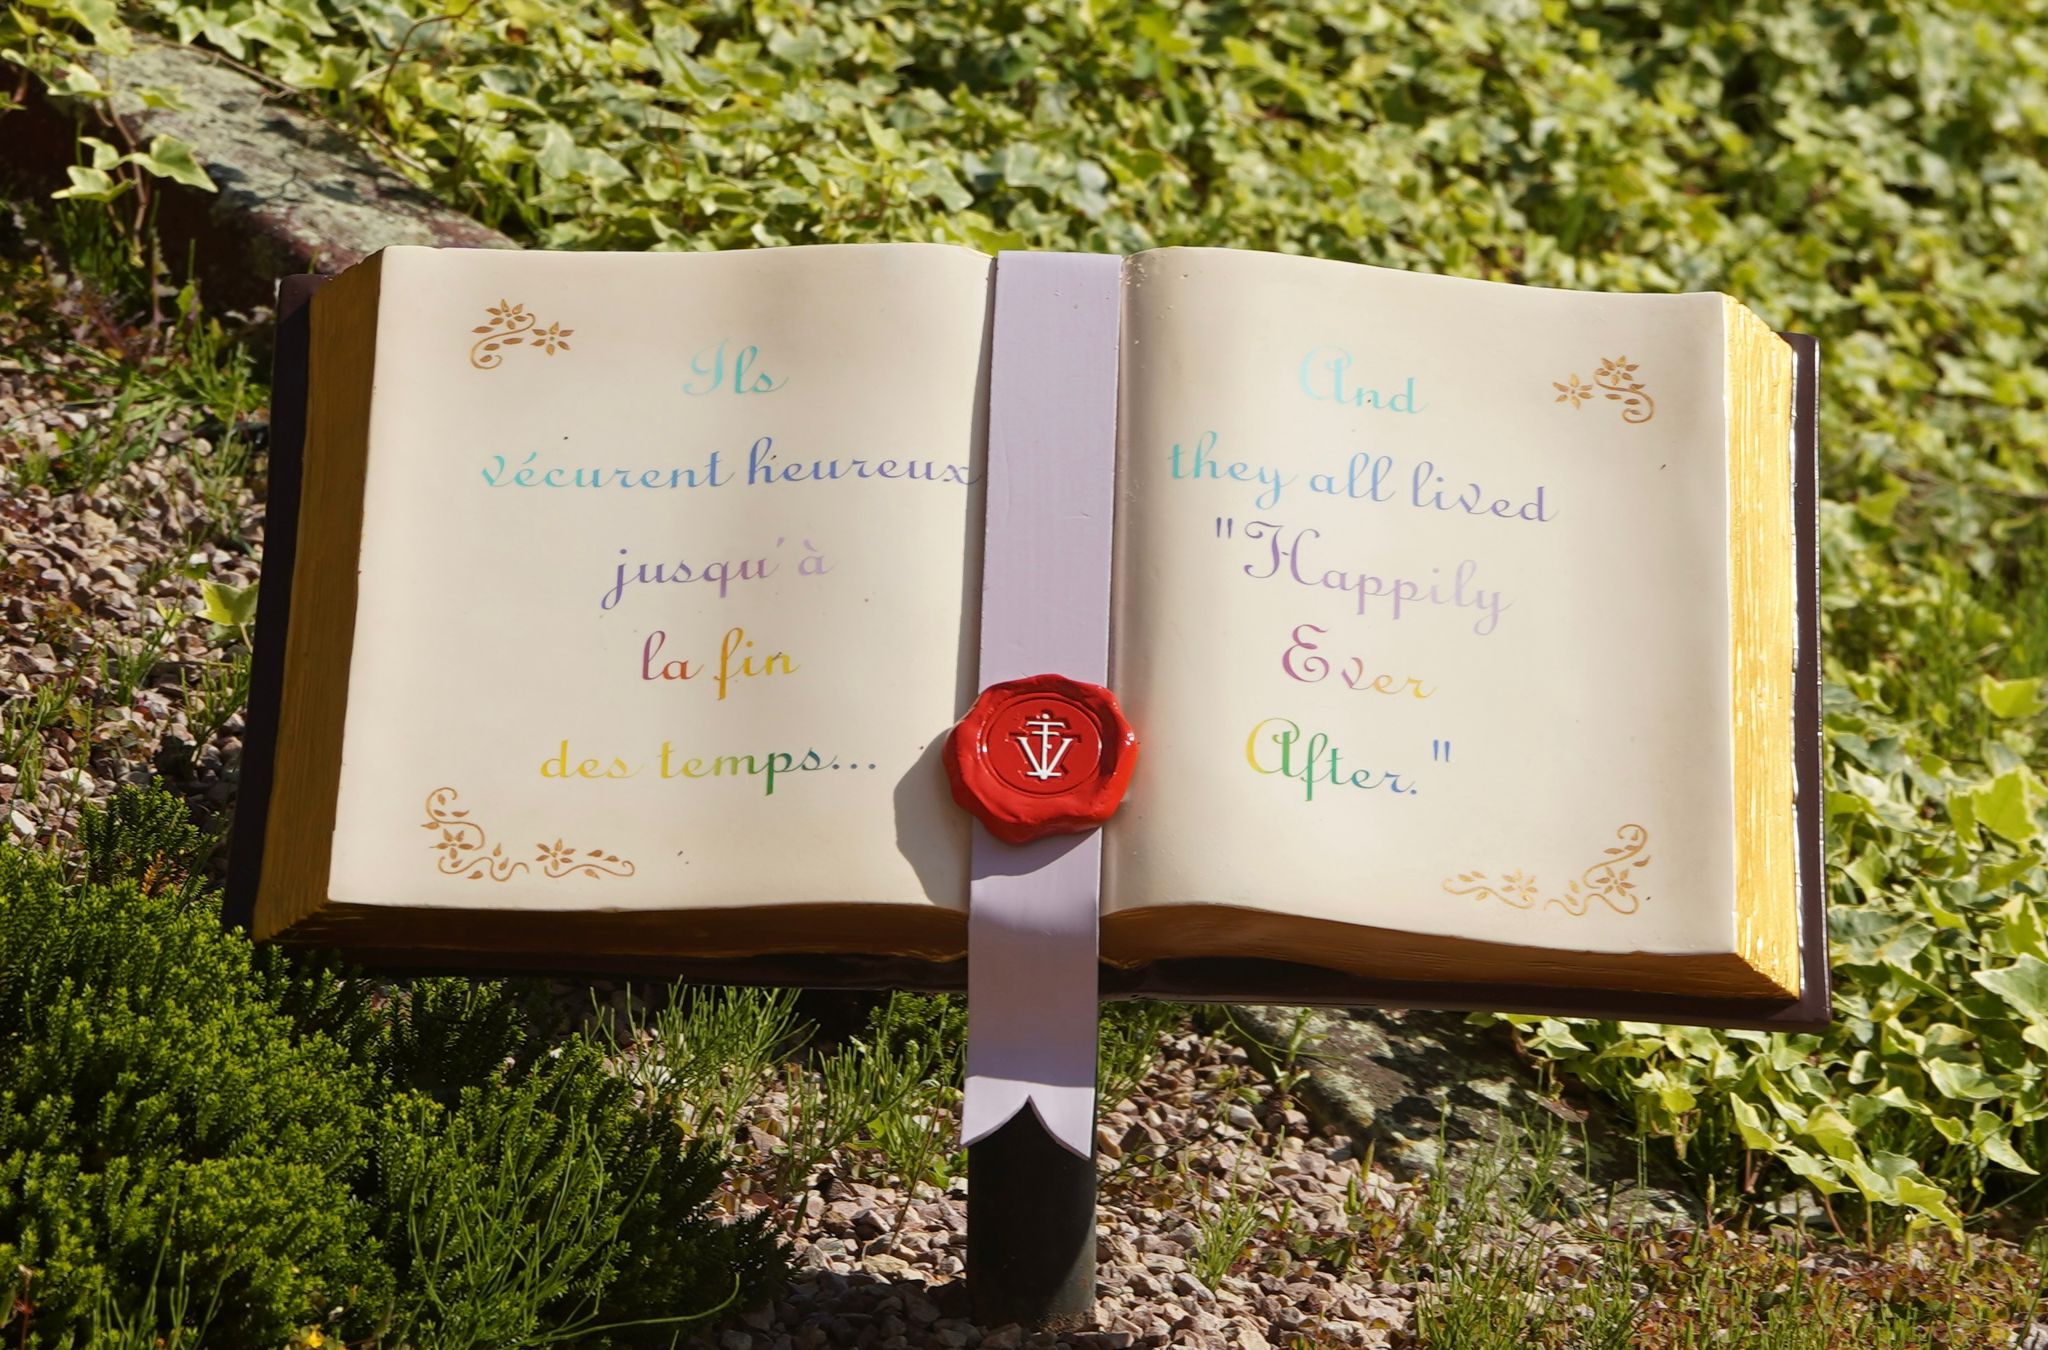 Ils
vécurent heureux
jusqu'à
la fin
des temps...
And
they all lived
"Happily
Ever
After."